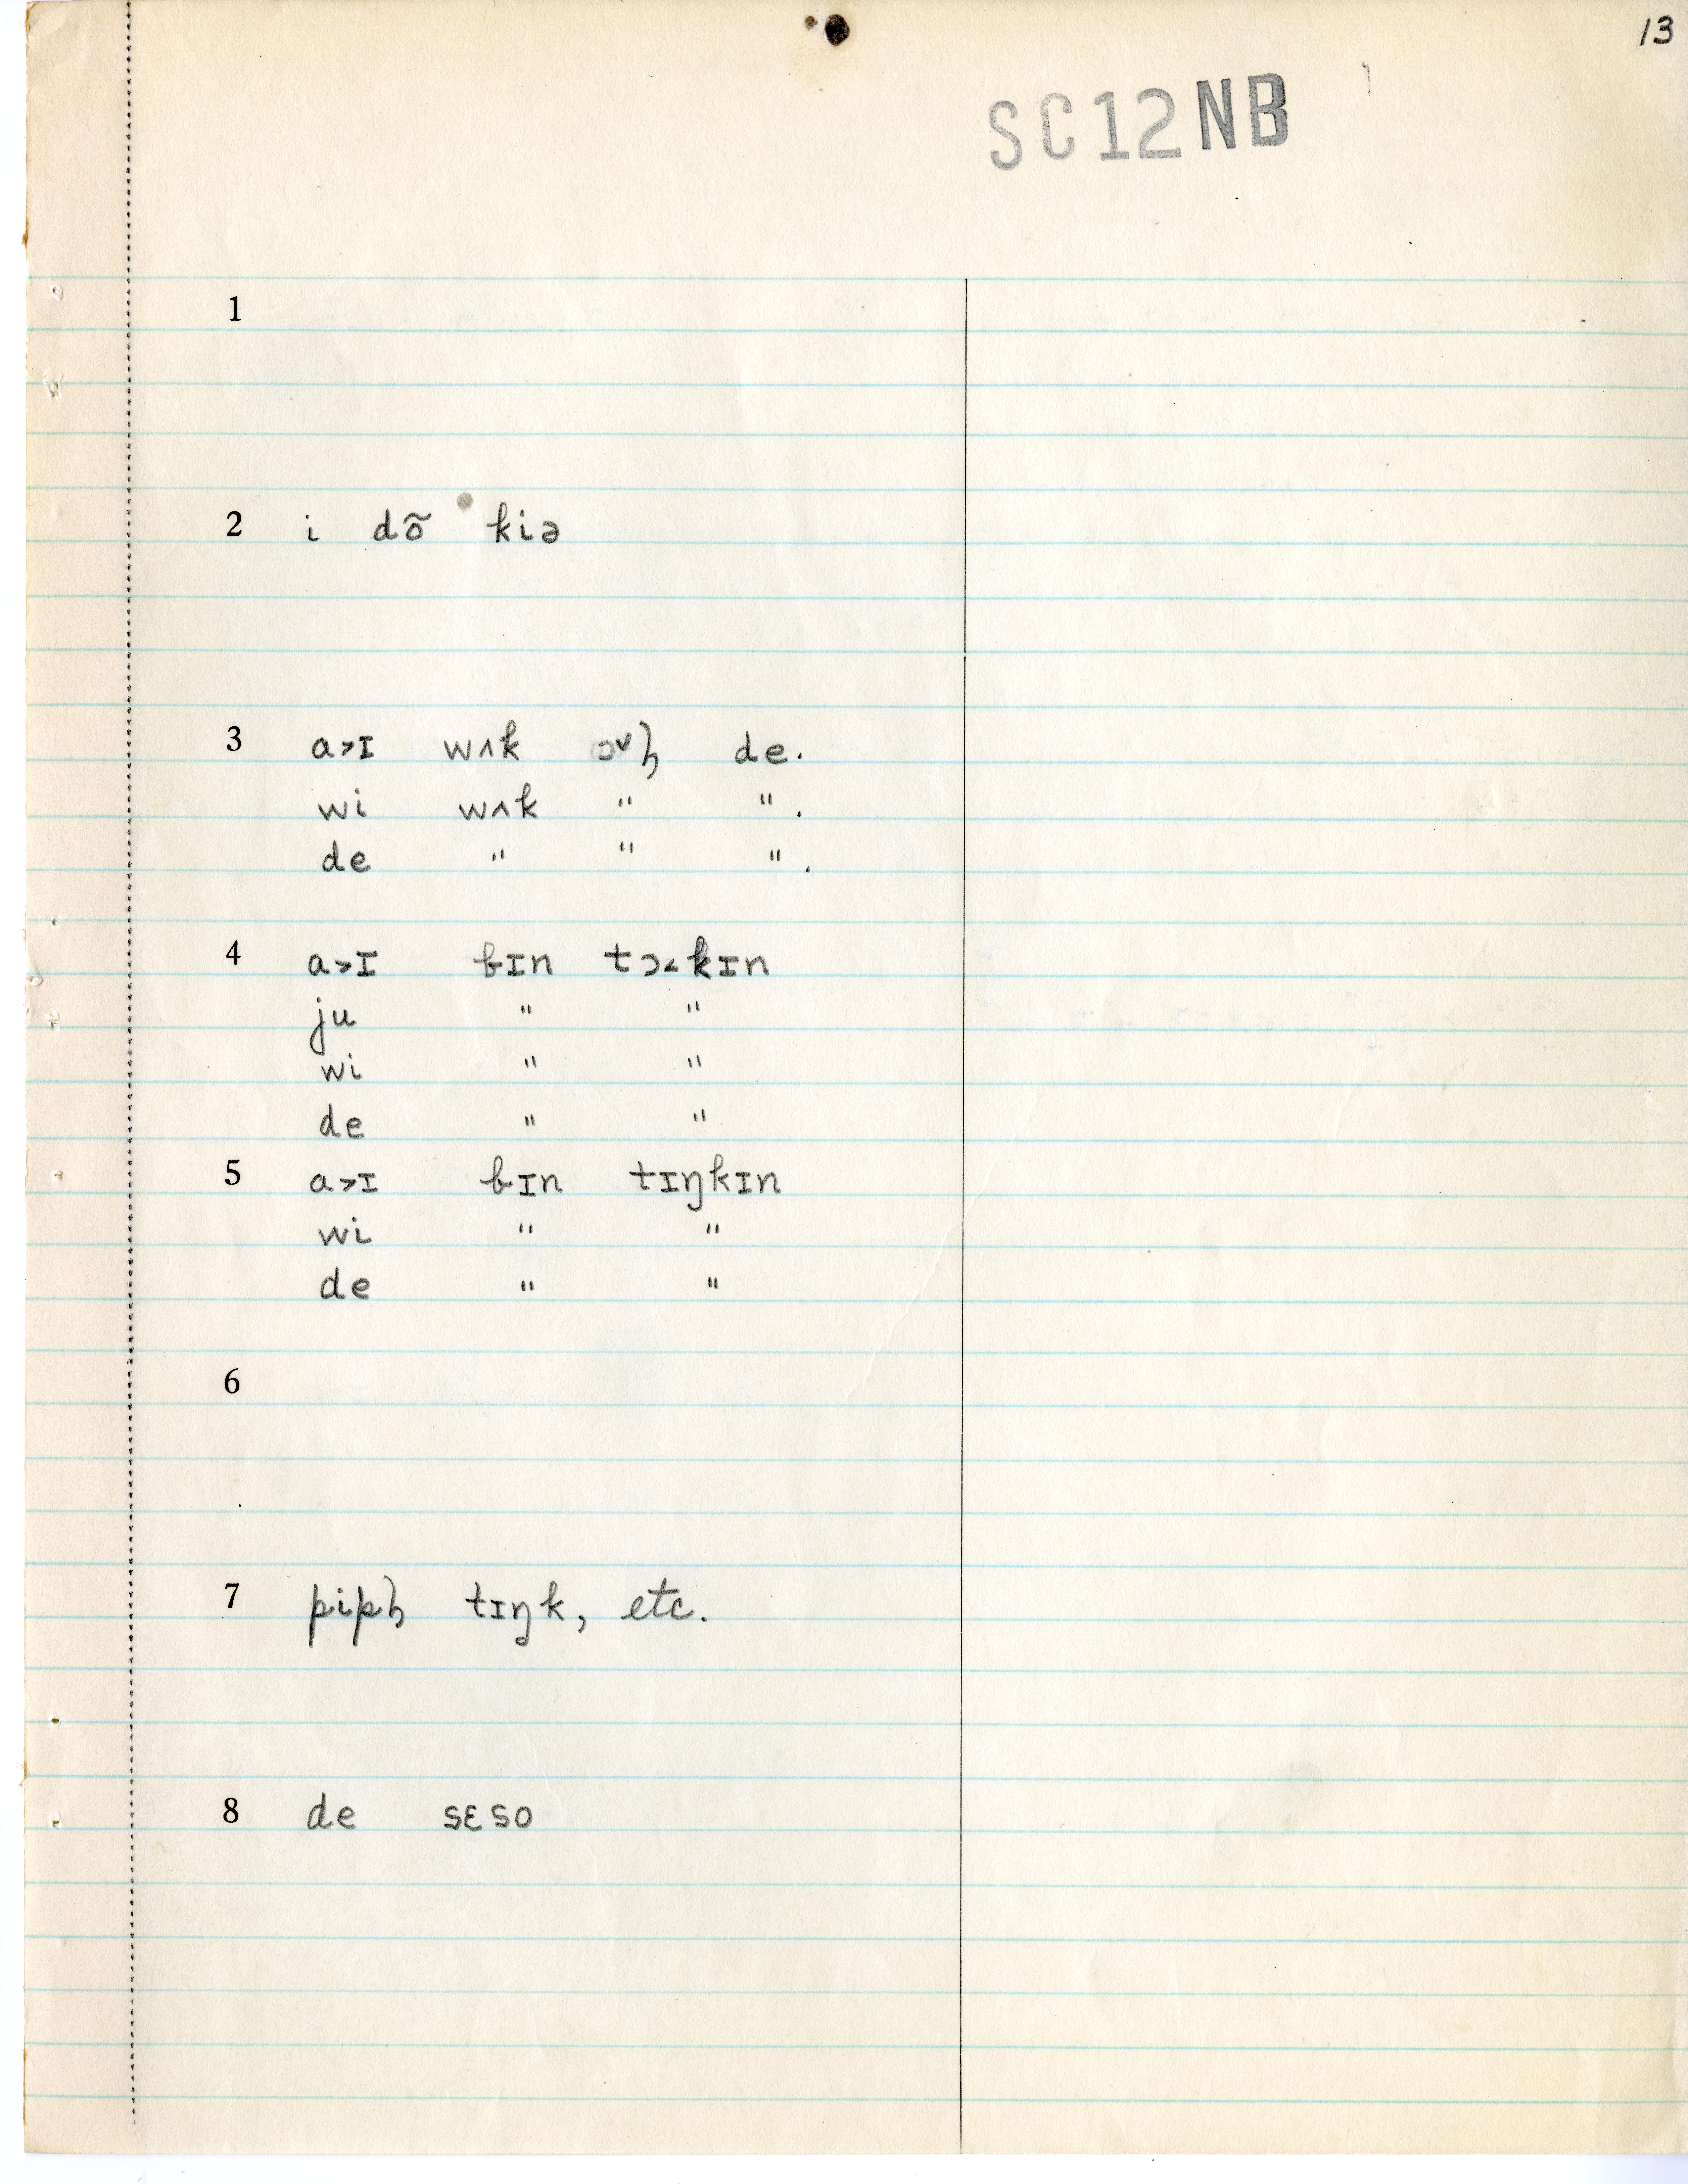 13
SC12NB
1
2 i dõ kiə
3 a˃ɪ wʌk ɔ˅ɦ de.
wi wʌk " ".
de " " ".
4 a˃ɪ bɪn tɔ˂kɪn
ju " "
wi " "
de " "
5 a˃ɪ bɪn tɪŋkɪn
wi " "
de " "
6
7 pipɦ tɪŋk, etc.
8 de sɛso